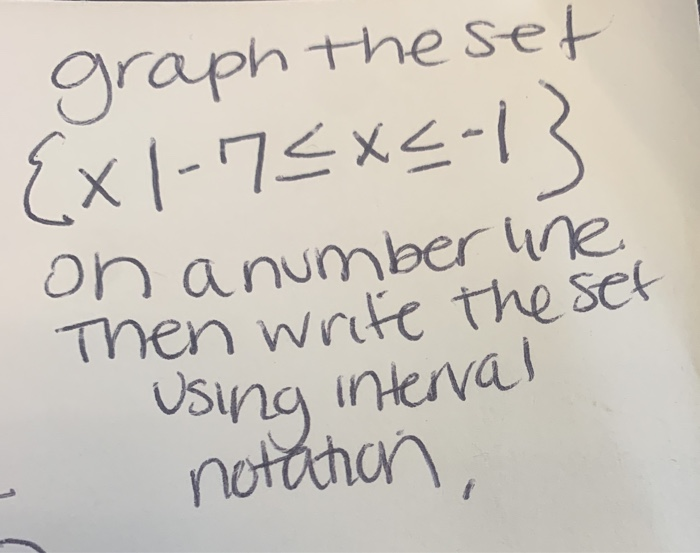 graph the set
{x|-7≤x≤-1}
on a number line.
Then write the set
using interval
notation,